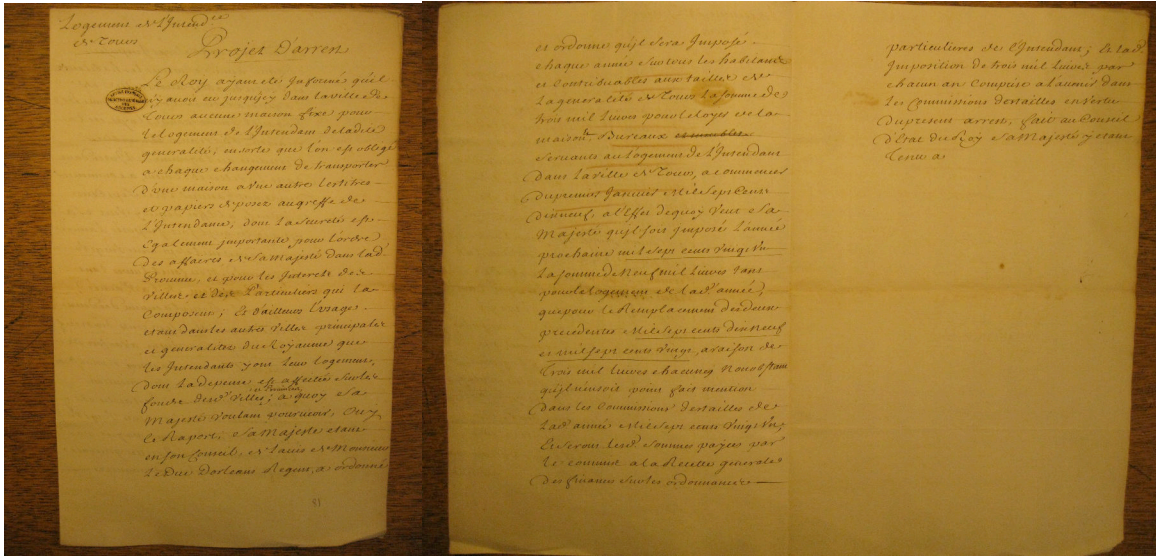 Logement de L'Intend.ce
de Tours
Projet D'arrest
Le Roy ayant esté Informé qu'il
n'y avoit eu jusqu'icy dans la ville de
Tours aucune maison fixe pour
le logement de l'Intendant de lade
generalité, ensorte que l'on est obligé
a chaque changement de transporter
d'une maison a une autre les titres
et papiers deposez au greffe de
L'Intendance, dont la sureté est
Egalement importante pour l'ordre
des affaires de Sa Majesté dans lad.
Province, et pour les Interests des
Villes et des Particuliers qui la
Composent; Et d'ailleurs L'usage
estant dans les autres Villes principales
et generalitez du Royaume que
les Intendants y ont leur logement,
dont la depense est affectée sur les
fonds desd. Villes; a quoy Sa
Majesté voulant pourvoir, Ouy
le Raport; Sa Majesté estant
en son Conseil, de l'avis de Monsieur
Le Duc Dorleans Regent, a ordonné
et ordonne qu'il sera Imposé
chaque année sur tous les habitans
et Contribuables aux tailles de
La generalité de Tours la somme de
trois mil livres pour le loyer de la
maison Bureaux et meubles
Servants au logement de L'Intendant
dans la ville de Tours, a commencer
du premier Janvier Mil Sept Cent
dixneuf, a l'Effet dequoy Veut Sa
Majesté qu'il soit Imposé l'année
prochaine mil sept cents vingt Un
La somme de Neuf mil livres tant
pour le logement de lad. année,
que pour le Remplacement des deux
precedentes Mil sept cents dix neuf
et mil sept cents vingt, a raison de
Trois mil livres chacune, Nonobstant
qu'il n'en soit point fait mention
dans les Commissions des tailles de
lad. année Mil sept cents vingt Un,
Et seront lesd. sommes payées par
le commis a la Recette generale
des finances sur les ordonnances
particulieres de l'Intendant; Et lad.
Imposition de trois mil livres par
chacun an Comprise a l'avenir dans
les Commissions des tailles en vertu
du present arrest, fait au Conseil
d'Etat du Roy Sa Majesté y estant
Tenu a